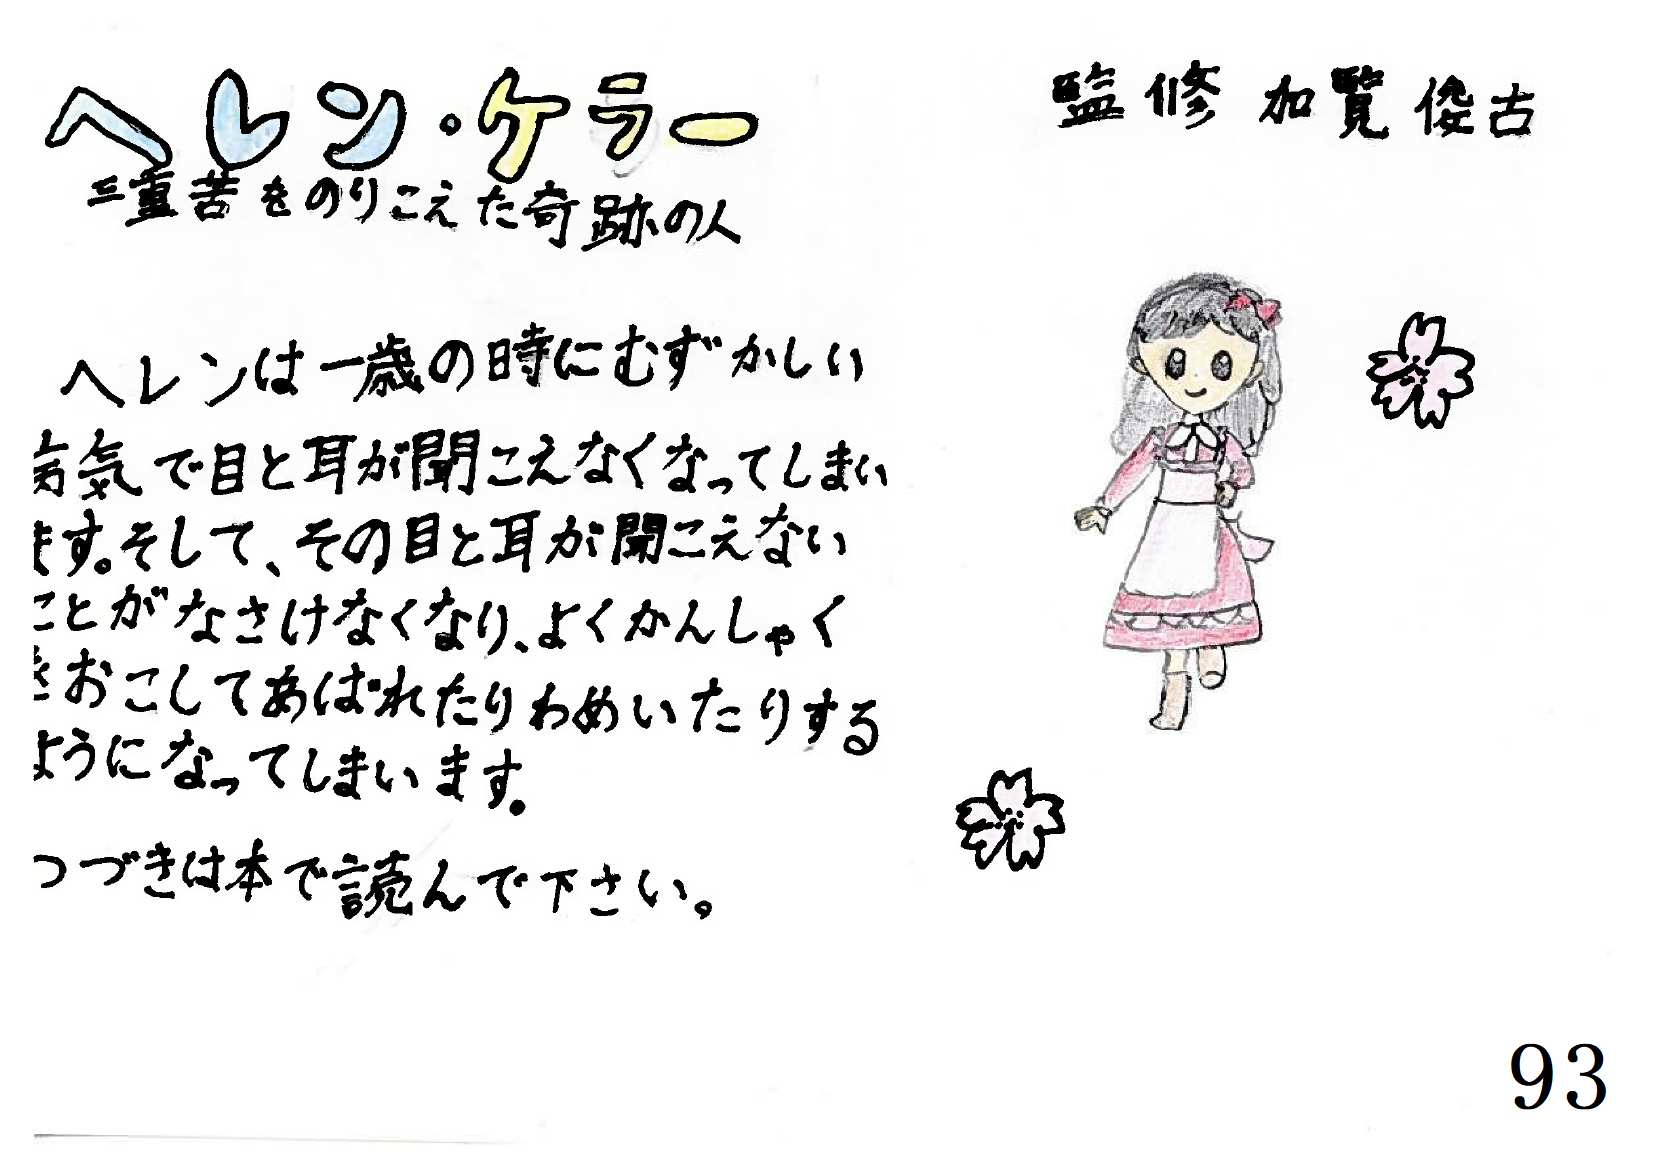 ヘレン・ケラー
三重苦をのりこえた奇跡の人
監修 加覧俊吉
ヘレンは一歳の時にむずかしい
病気で目と耳が聞こえなくなってしまい
ます。そして、その目と耳が聞こえない
ことがなさけなくなり、よくかんしゃく
をおこしてあばれたりわめいたりする
ようになってしまいます。
つづきは本で読んで下さい。
93